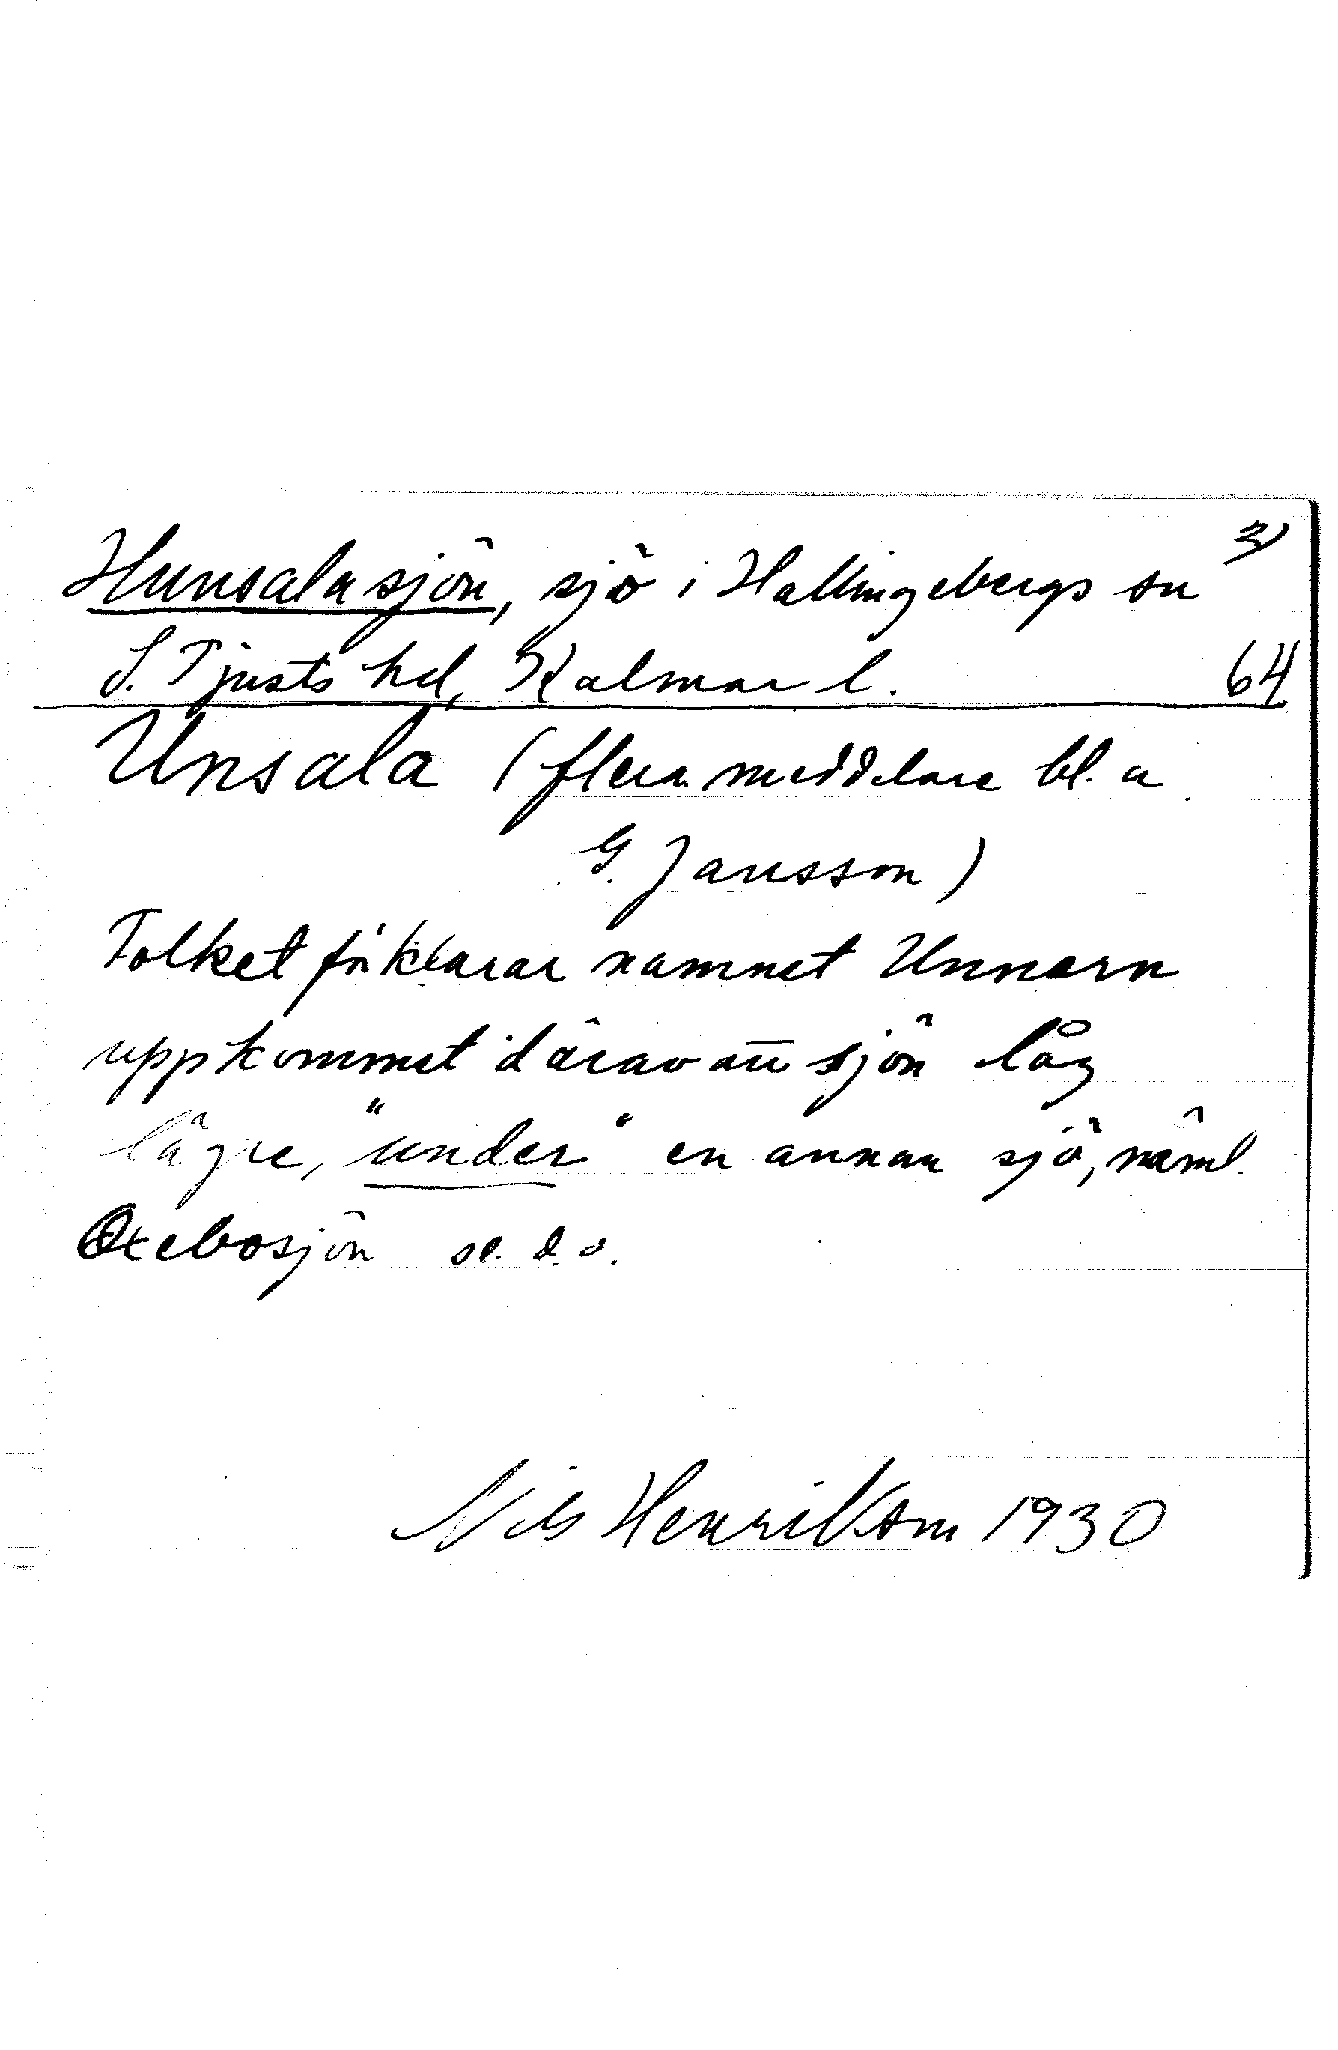 3)
Hunsalasjön, sjö i Hallingebergs sn
S. Tjusts hd, Kalmar l. 64
Unsala (flera meddelare bl. a
G. Jansson)
Folket förklarar namnet Unnarn
uppkommet därav att sjön låg
lägre, "under" en annan sjö, näml.
Oxebosjön se. d. o.
Nils Henrikson 1930